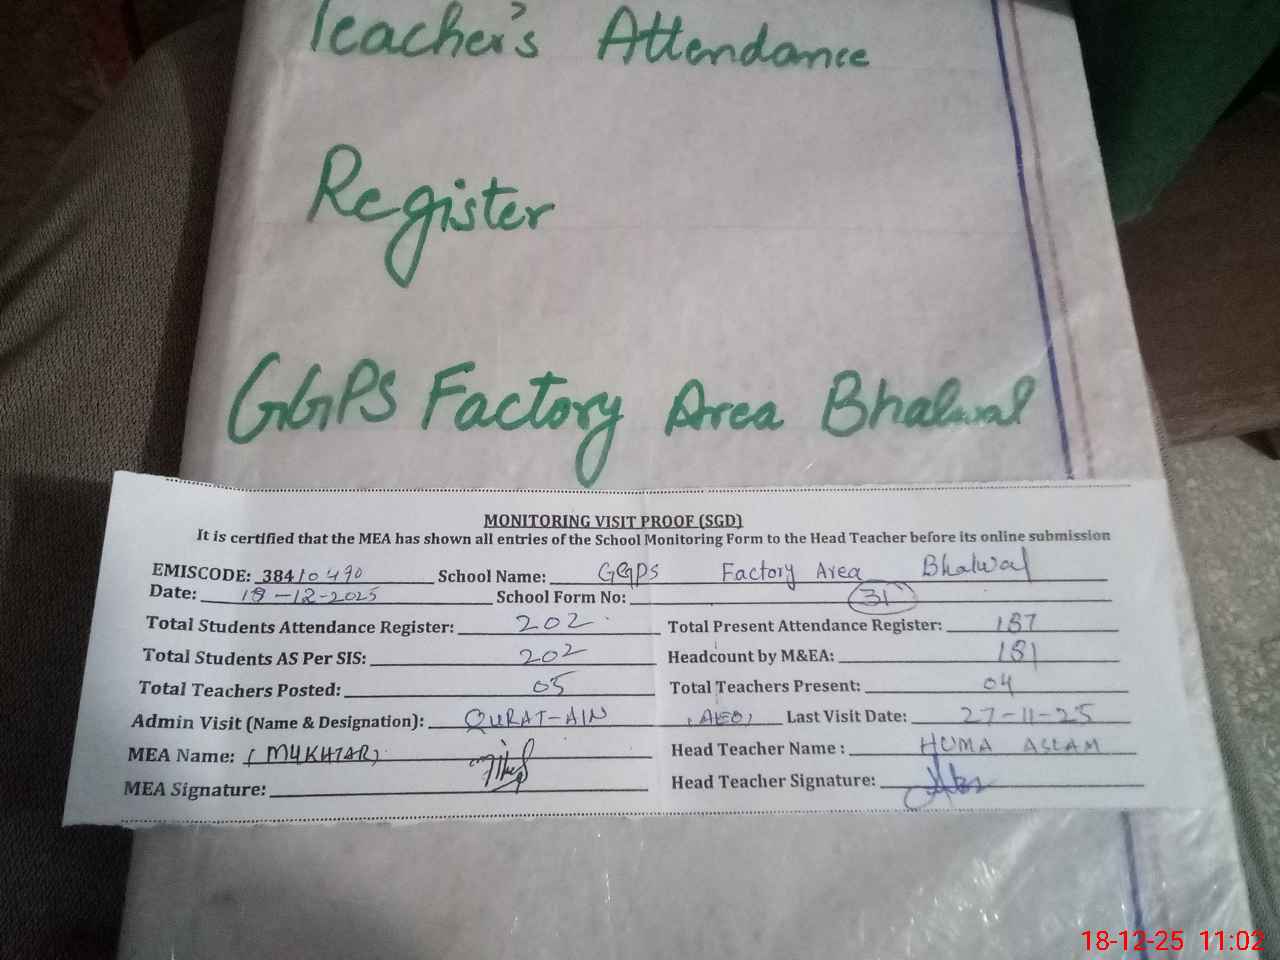 Teacher's Attendance
Register
GGPS Factory Area Bhalwal
MONITORING VISIT PROOF (SGD)
It is certified that the MEA has shown all entries of the School Monitoring Form to the Head Teacher before its online submission
EMISCODE: 38410490 School Name: GGPS Factory Area Bhalwal
Date: 18-12-2025 School Form No: 31
Total Students Attendance Register: 202 Total Present Attendance Register: 187
Total Students AS Per SIS: 202 Headcount by M&EA: 181
Total Teachers Posted: 05 Total Teachers Present: 04
Admin Visit (Name & Designation): QURAT-AIN (AEO) Last Visit Date: 27-11-25
MEA Name: (MUKHTAR) Head Teacher Name : HUMA ASLAM
MEA Signature: Head Teacher Signature:
18-12-25 11:02